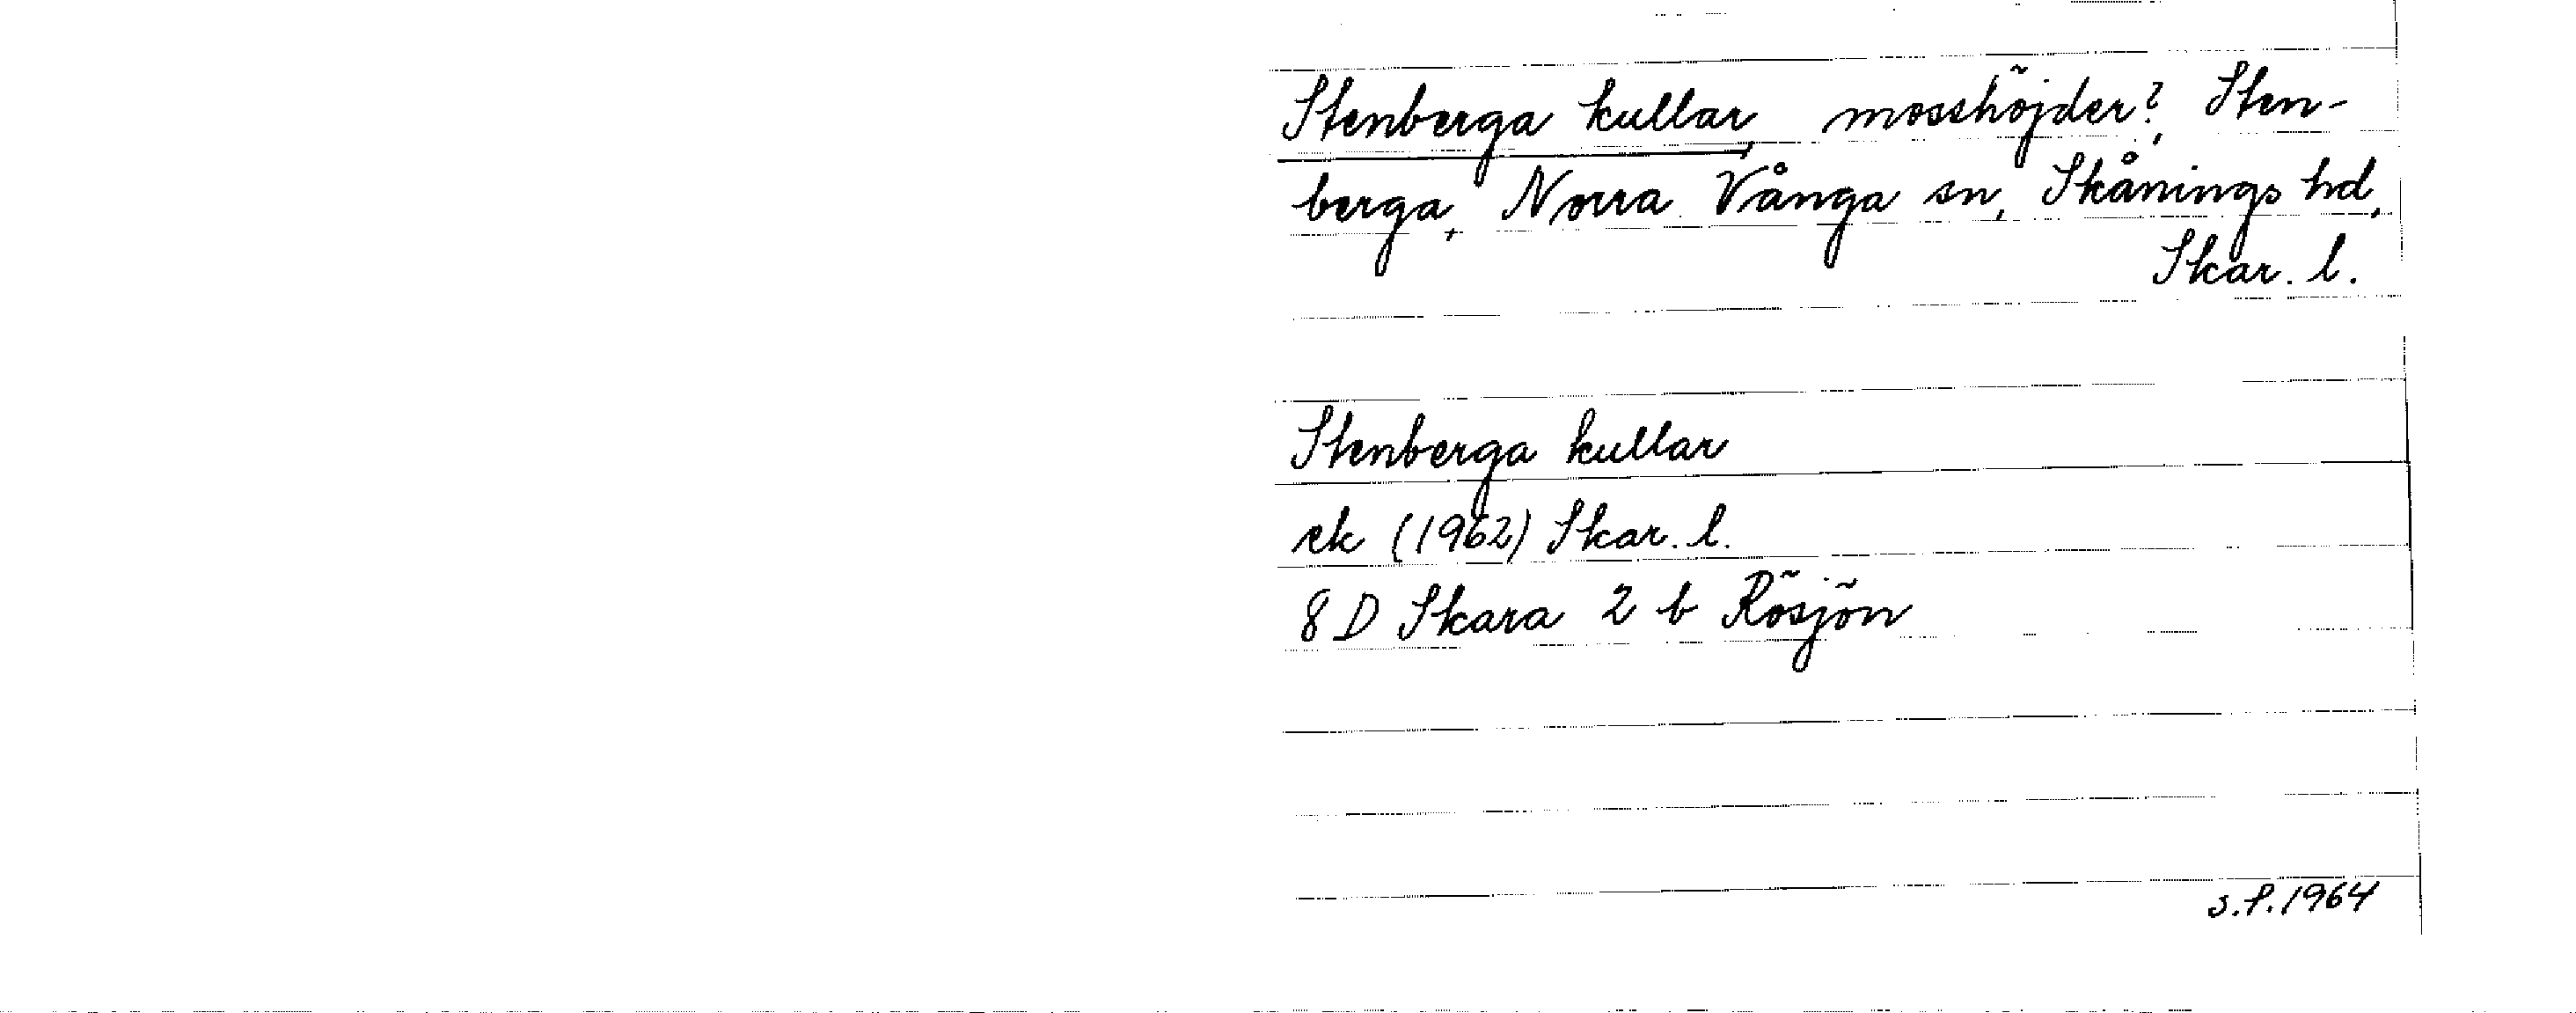 Stenberga kullar, mosshöjder?, Sten-
berga, Norra Vånga sn, Skånings hd,
Skar. l.
Stenberga kullar
ek (1962) Skar. l.
8 D Skara 2 b Rösjön
s.f. 1964